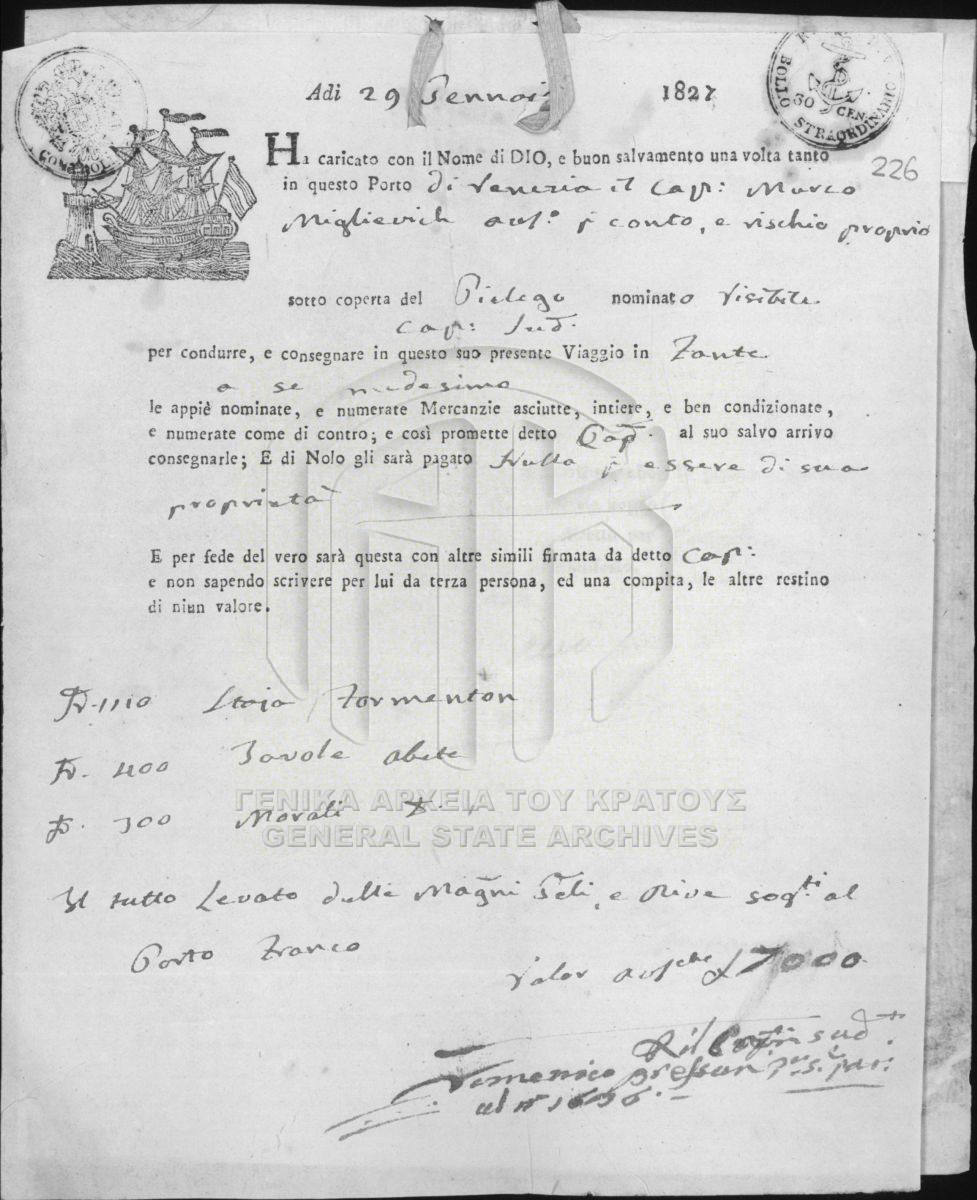 Adi 29 Gennaio 1827
BOLLO STRAORDINARIO
CEN.
226
Ha caricato con il Nome di DIO, e buon salvamento una volta tanto
in questo Porto di Venezia il Cap: Marco
Miglievich aus.º p conto, e rischio proprio
sotto coperta del Pielego nominato Visibile
Cap: sud.
per condurre, e consegnare in questo suo presente Viaggio in Zante
a se medesimo
le appiè nominate, e numerate Mercanzie asciutte, intiere, e ben condizionate,
e numerate come di contro; e così promette detto Cap. al suo salvo arrivo
consegnarle; E di Nolo gli sarà pagato Nulla p essere di sua
proprietà
E per fede del vero sarà questa con altre simili firmata da detto Cap:
e non sapendo scrivere per lui da terza persona, ed una compita, le altre restino
di niun valore.
1110 Staja Formenton
400 Tavole abete
300 Morali
Il tutto Levato dalli Magni e Rive sog.ti al
Porto Franco
Valor aus.che £ 7000
ΓΕΝΙΚΑ ΑΡΧΕΙΑ ΤΟΥ ΚΡΑΤΟΥΣ
GENERAL STATE ARCHIVES
Domenico